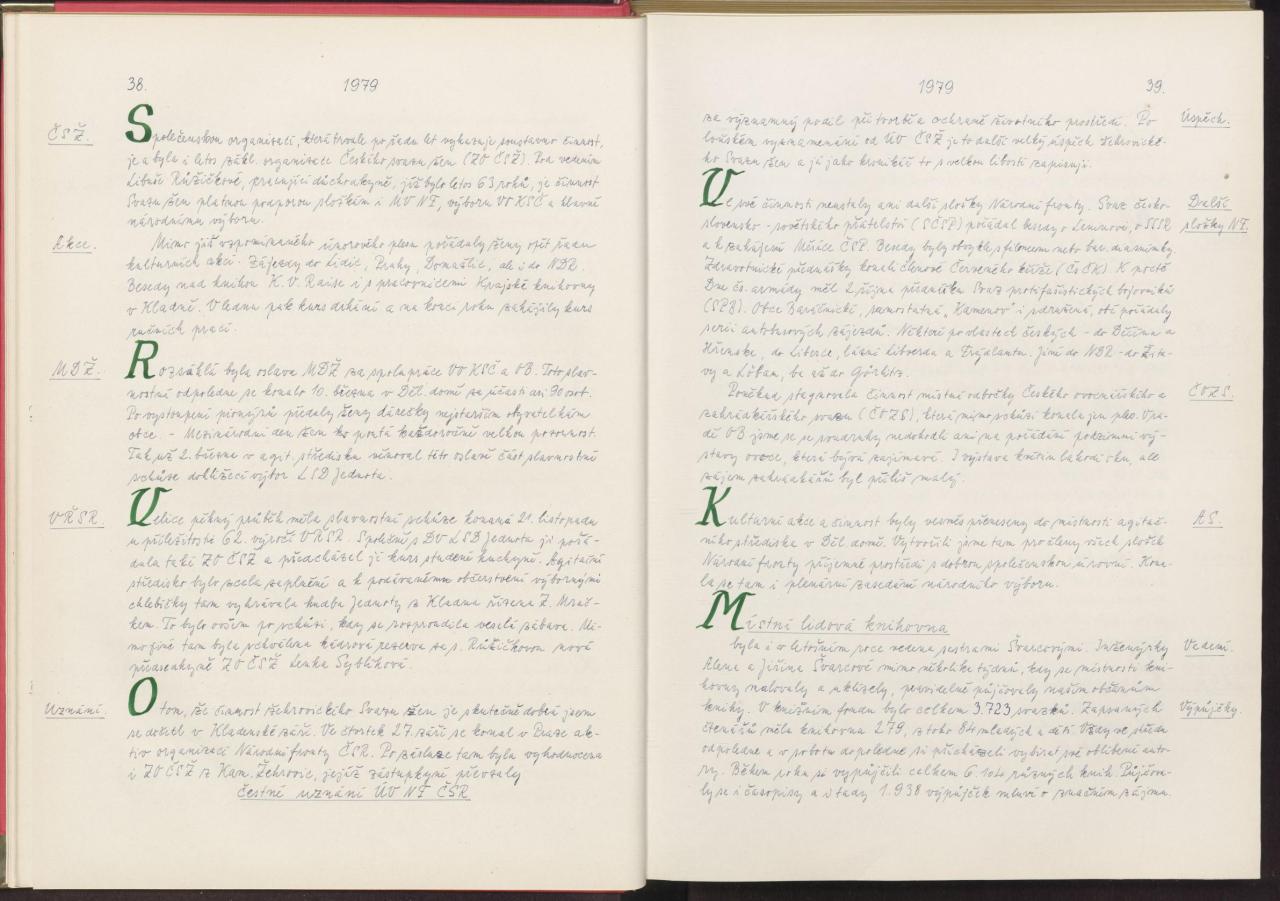 38.
1979
ČSŽ.
Společenskou organisací, která trvale po řadu let vykazuje soustavnou činnost,
je a byla i letos zákl. organisace Českého svazu žen (ZO ČSŽ). Pod vedením
Libuše Růžičkové, pracující důchodkyně, jíž bylo letos 63 roků, je činnost
Svazu žen platnou podporou složkám i MV NF, výboru VO KSČ a hlavně
národnímu výboru.
Akce.
Mimo již vzpomínaného únorového plesu pořádaly ženy opět řadu
kulturních akcí. Zájezdy do Lidic, Prahy, Domažlic, ale i do NDR.
Besedy nad knihou K. V. Raise i s pracovnicemi Krajské knihovny
v Kladně. V lednu pak kurs drhání a na konci roku zahájily kurs
ručních prací.
MDŽ.
Rozsáhlá byla oslava MDŽ za spolupráce VO KSČ a OB. Toto slav-
nostní odpoledne se konalo 10. března v Děl. domě za účasti asi 90 osob.
Po vystoupení pionýrů předaly ženy dárečky nejstarším obyvatelkám
obce. – Mezinárodní den žen má poutá každoročně velkou pozornost.
Tak už 2. března v agit. středisku věnoval této oslavě část slavnostní
schůze dohlížecí výbor LSD Jednota.
VŘSR.
Velice pěkný průběh měla slavnostní schůze konaná 21. listopadu
u příležitosti 62. výročí VŘSR. Společně s DV LSD Jednota ji pořá-
dala také ZO ČSŽ a předcházel jí kurs studené kuchyně. Agitační
středisko bylo zcela zaplněné a k podávanému občerstvení výbornými
chlebíčky tam vyhrávala hudba Jednoty z Kladna řízena Z. Mrač-
kem. To bylo ovšem po schůzi, kdy se rozproudila veselá zábava. Mi-
mořině tam byla schválena kádrová rezerva za s. Růžičkovou nová
předsedkyně ZO ČSŽ Lenka Syblíková.
Uznání.
O tom, že činnost žehrovického Svazu žen je skutečně dobrá jsem
se dočetl v Kladenské záři. Ve čtvrtek 27. září se konal v Praze ak-
tiv organizací Národní fronty ČSR. Po zásluze tam byla vyhodnocena
i ZO ČSŽ z Kam. Žehrovic, jejíž zástupkyně převzaly
čestné uznání ÚV NF ČSR
1979
39.
za významný podíl při tvorbě a ochraně životního prostředí. Po
loňském vyznamenání od ÚV ČSŽ je to další velký úspěch žehrovické-
ho Svazu žen a já jako kronikář to s velkou libostí zapisuji.
Úspěch.
Ve své činnosti neustaly ani další složky Národní fronty. Svaz česko-
slovensko-sovětského přátelství (SČSP) pořádal besedy o Leninovi, o SSSR
a k zahájení Měsíce ČSP. Besedy byly obvykle s filmem neb bar. diasnímky.
Zdravotnické přednášky konali členové Červeného kříže (Čs ČK). K poctě
Dne čs. armády měl 2. října přednášku Svaz protifašistických bojovníků
(SPB). Obce Baráčníků, samostatná „Kamenov" i sdružená, obě pořádaly
serii autobusových zájezdů. Některé po vlastech českých – do Děčína a
Hřenska, do Liberce, lázní Libverda a Frýdlantu. Jiné do NDR – do Žita-
vy a Löbau, ba až do Görlitz.
Další
složky NF.
Poněkud stagnovala činnost místní odbočky Českého ovocnářského a
zahrádkářského svazu (ČOZS), která mimo schůzí konala jen předn. V ra-
dě OB jsme se se soudruhy nedohodli ani na pořádání podzimní vý-
stavy ovoce, která bývá zajímavá. I výstava květin lahodí oku, ale
zájem zahrádkářů byl příliš malý.
ČOZS.
Kulturní akce a činnost byly vesměs přeneseny do místnosti agitač-
ního střediska v Děl. domě. Vytvořili jsme tam pro členy všech složek
Národní fronty příjemné prostředí s dobrou společenskou úrovní. Kona-
la se tam i plenární zasedání národního výboru.
AS.
Místní lidová knihovna
byla i v letošním roce vedena sestrami Švarcovými. Inženýrky
Alena a Jiřina Švarcové mimo několika týdnů, kdy se místnosti kni-
hovny malovaly a uklízely, pravidelně půjčovaly našim občanům
knihy. V knižním fondu bylo celkem 3.723 svazků. Zapsaných
čtenářů měla knihovna 279, z toho 84 mladých a dětí. Vždy ve středu
odpoledne a v sobotu dopoledne si přicházeli vybírat své oblíbené auto-
ry. Během roku si vypůjčili celkem 6.1010 různých knih. Půjčova-
ly se i časopisy a i tady 1.938 výpůjček mluví o značném zájmu.
Vedení.
Výpůjčky.